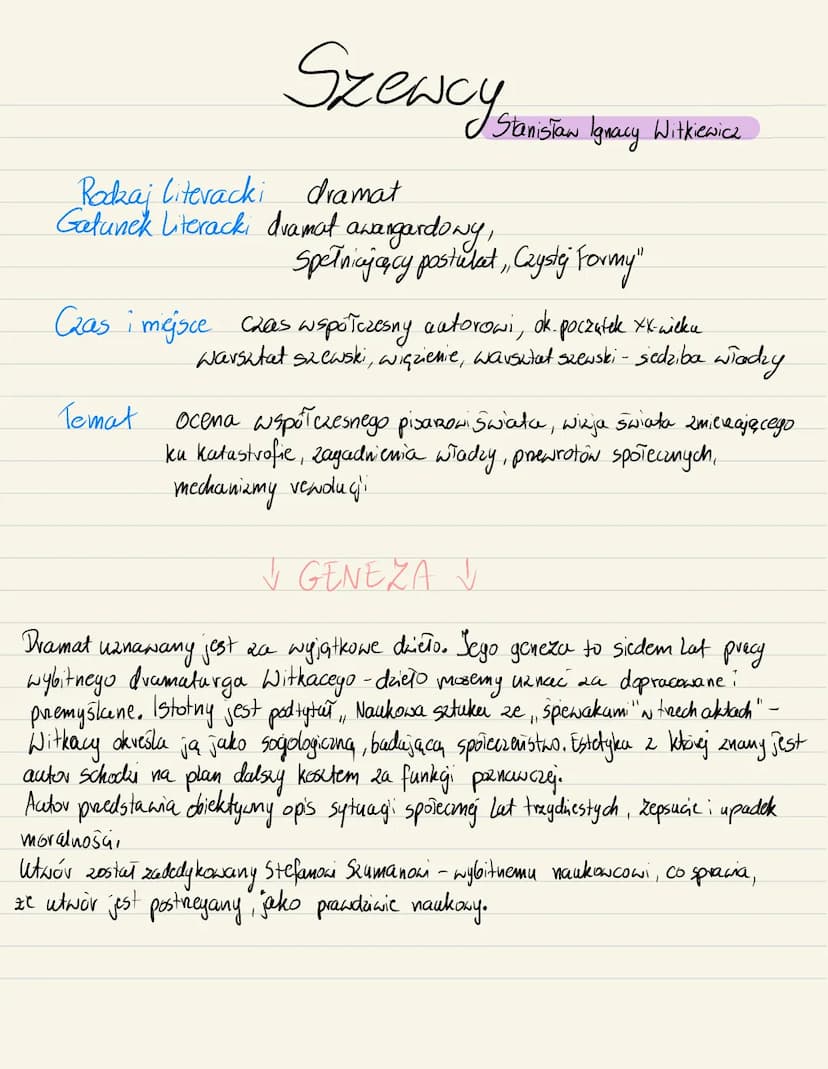 Szewcy
Stanisław Ignacy Witkiewicz
Rodzaj literacki dramat
Gatunek literacki dramat awangardowy,
spełniający postulat „Czystej Formy"
Czas i miejsce czas współczesny autorowi, ok. początek XX-wieku
warsztat szewski, więzienie, warsztat szewski - siedziba władzy
Temat ocena współczesnego pisarzowi świata, wizja świata zmierzającego
ku katastrofie, zagadnienia władzy, przewrotów społecznych,
mechanizmy rewolucji
↓ GENEZA ↓
Dramat uznawany jest za wyjątkowe dzieło. Jego geneza to siedem lat pracy
wybitnego dramaturga Witkacego - dzieło możemy uznać za dopracowane i
przemyślane. Istotny jest podtytuł „Naukowa sztuka ze „śpiewakami" w trzech aktach" -
Witkacy określa ją jako socjologiczną, badającą społeczeństwo. Estetyka z której znany jest
autor schodzi na plan dalszy kosztem za funkcji poznawczej.
Autor przedstawia obiektywny opis sytuacji społecznej lat trzydziestych, zepsucie i upadek
moralności,
Utwór został zadedykowany Stefanowi Szumanowi - wybitnemu naukowcowi, co sprawia,
że utwór jest postrzegany, jako prawdziwie naukowy.